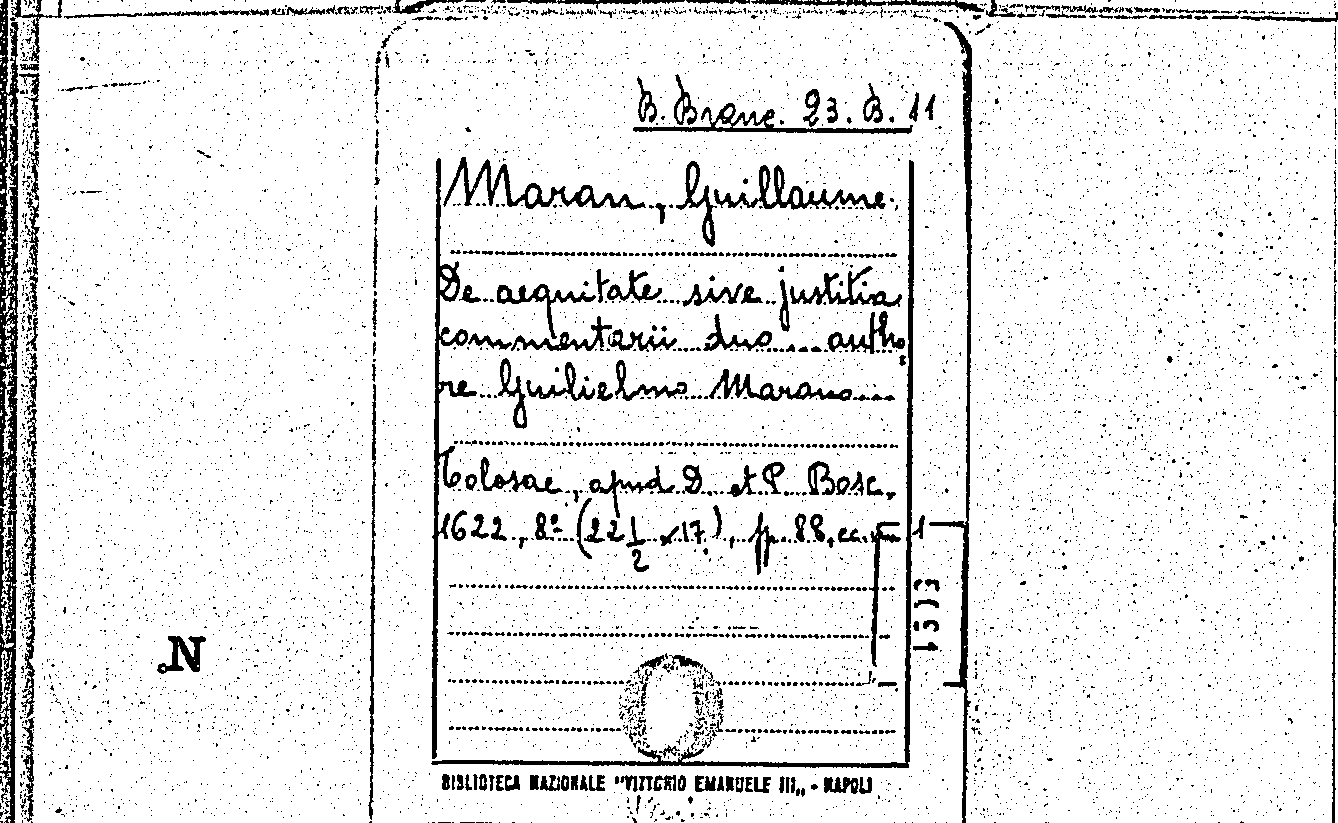 B. Branc. 23. B. 11
Maran, Guillaume.
De aequitate sive justitia
commentarii duo ... autho
re Guilielmo Marano...
Tolosae, apud D. et P. Bosc.
1622, 8º (22 1/2 x 17), pp. 88, cc. 1
1513
N
BIBLIOTECA NAZIONALE "VITTORIO EMANUELE III„ - NAPOLI